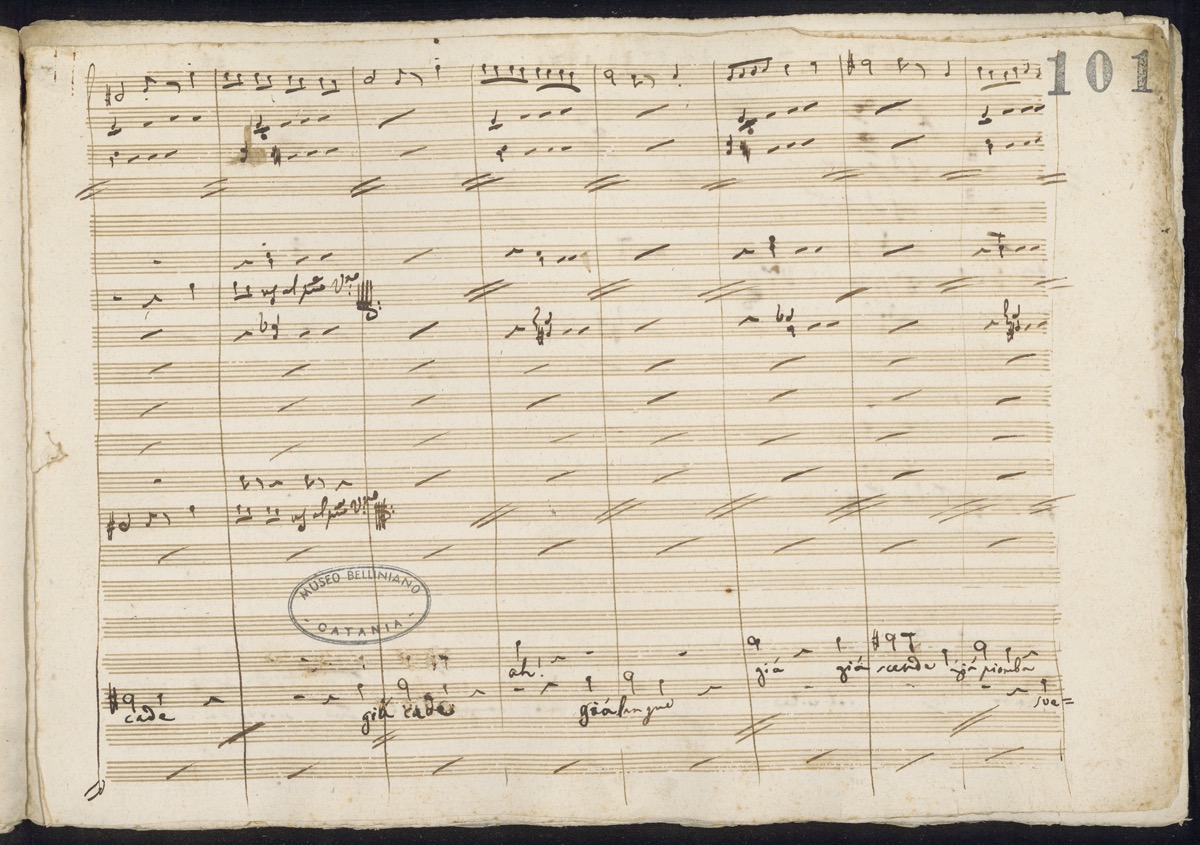 101
MUSEO BELLINIANO
- CATANIA -
ah!
già già scende già piomba
cade già cade già langue sve=